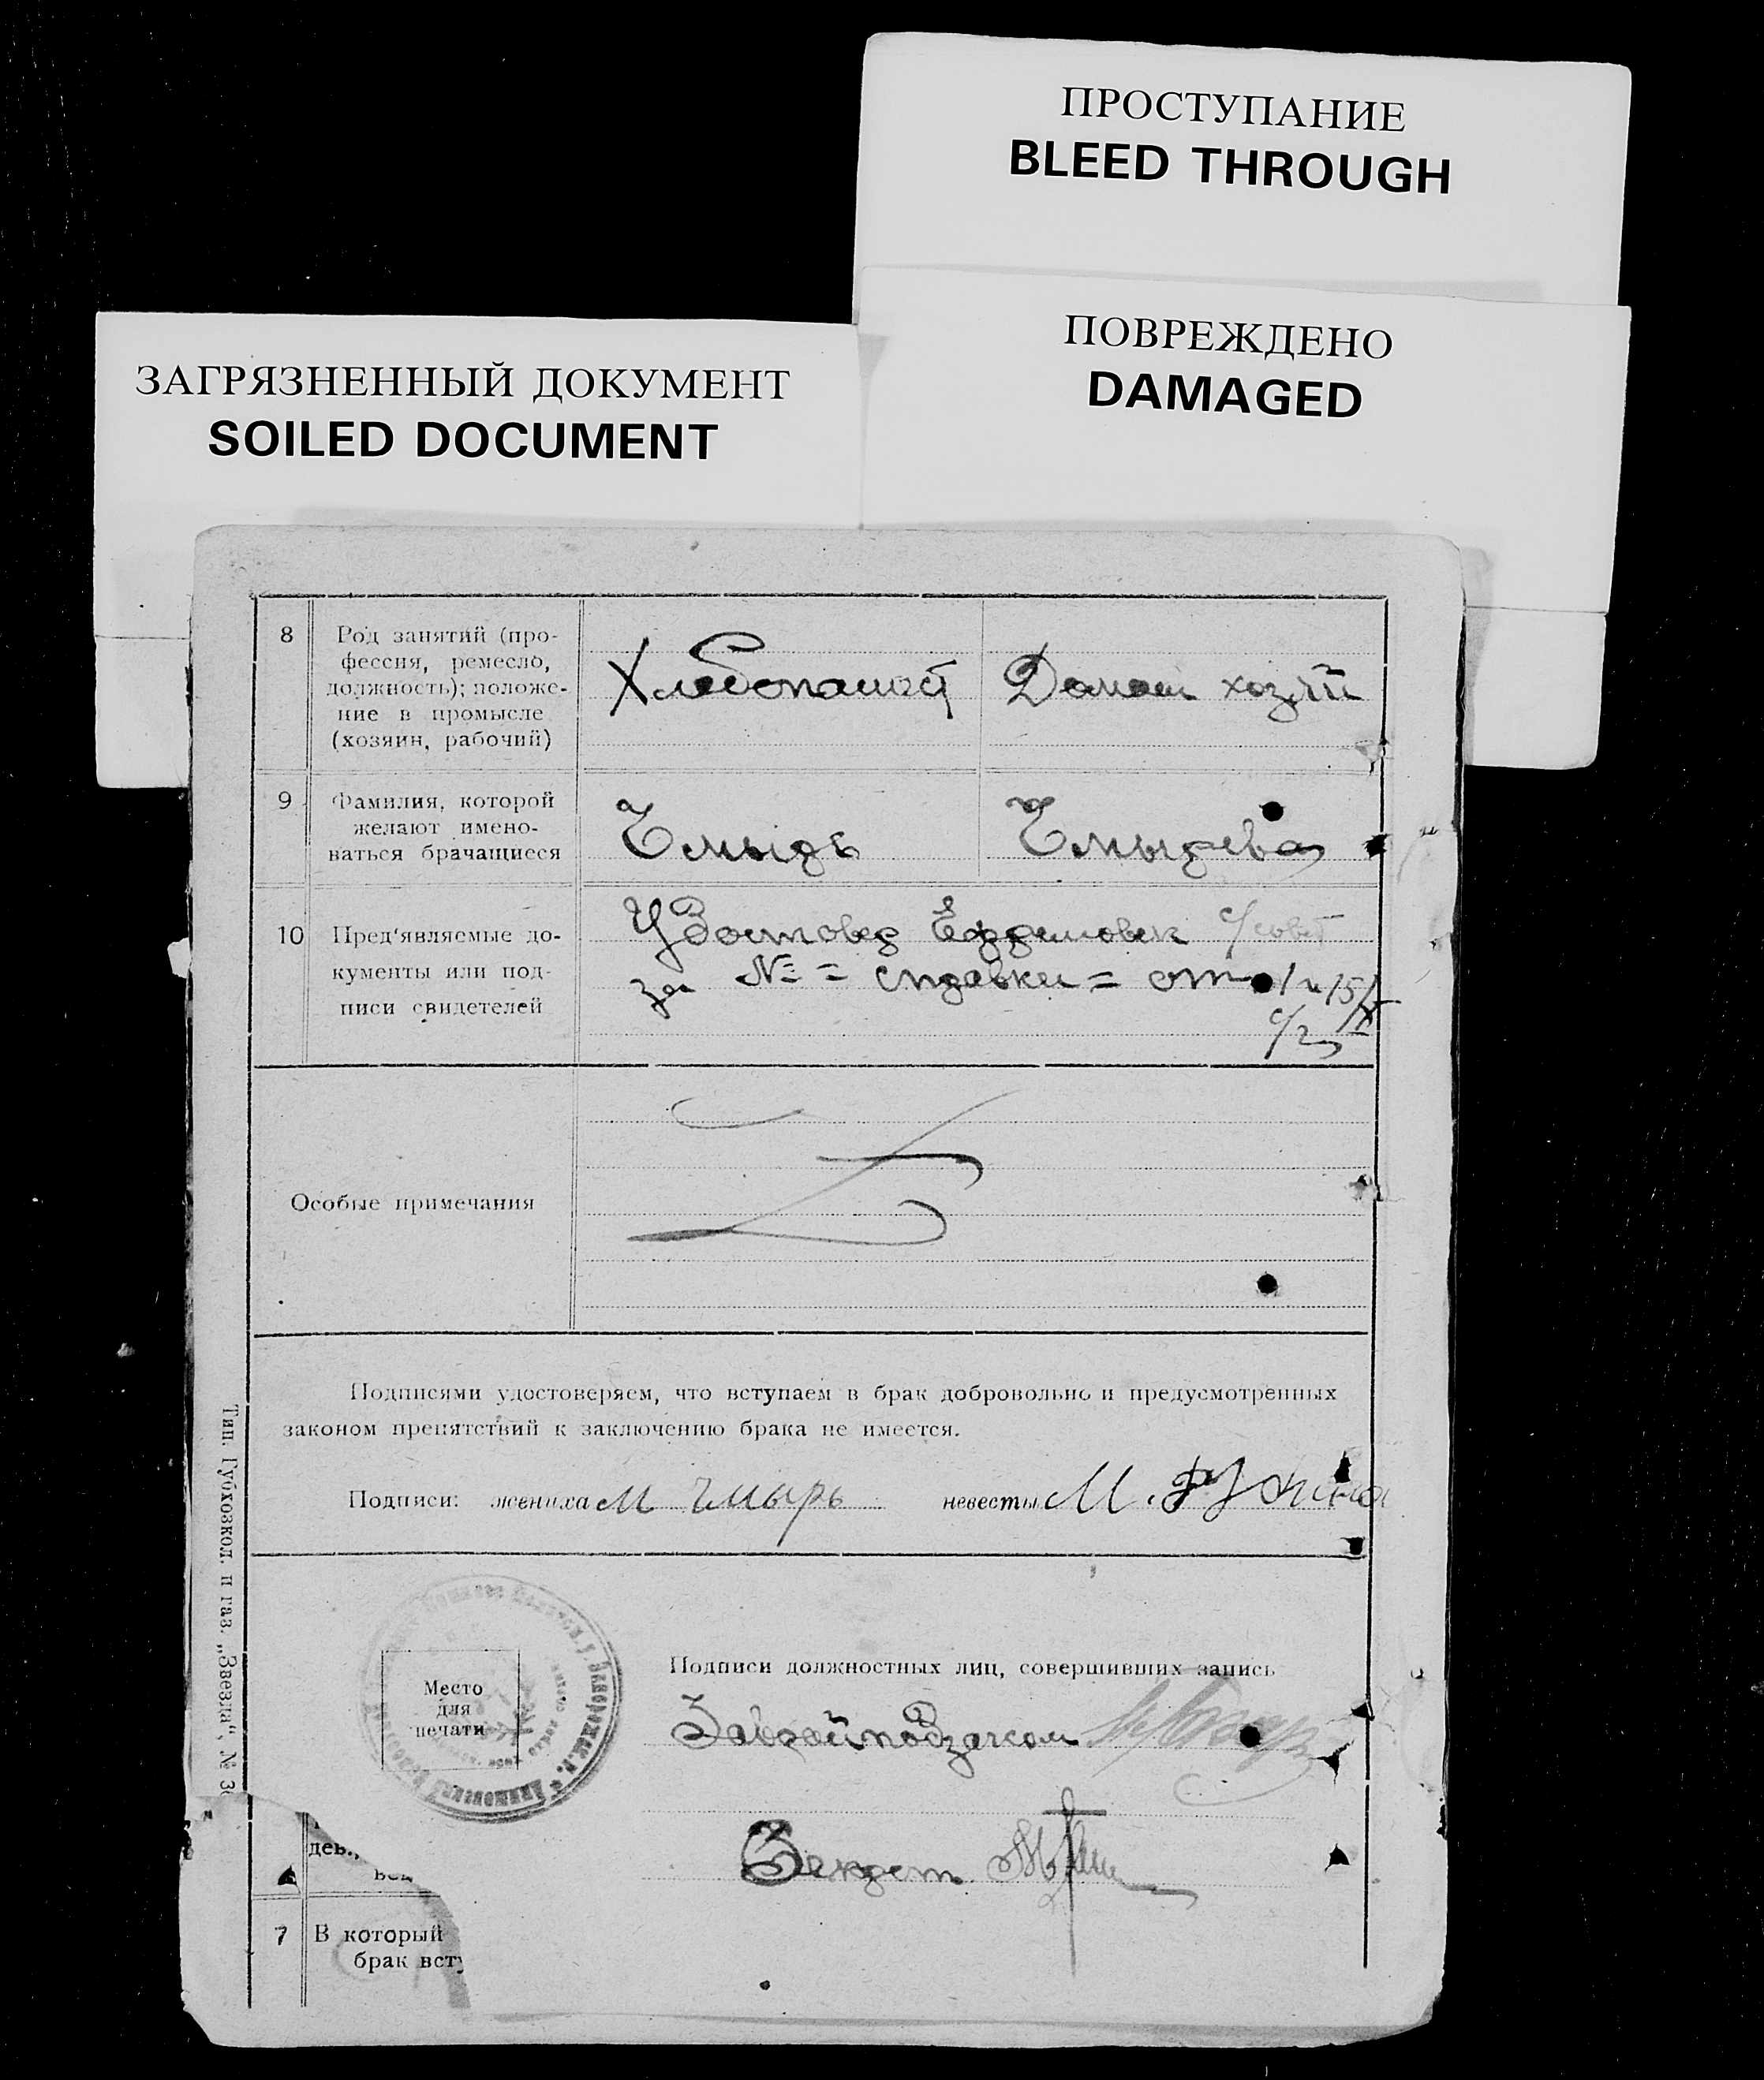 ПРОСТУПАНИЕ
BLEED THROUGH
ПОВРЕЖДЕНО
DAMAGED
ЗАГРЯЗНЕННЫЙ ДОКУМЕНТ
SOILED DOCUMENT
8 Род занятий (про-
фессия, ремесло,
должность); положе-
ние в промысле
(хозяин, рабочий)
Хлебопашец
Домаш хозяй
9 Фамилия, которой
желают имено-
ваться брачащиеся
Чмырь
Чмырева
10 Пред'являемые до-
кументы или под-
писи свидетелей
Удостовер Ефремовск с/совет
за № = справки = от 1 и 15/X
с/г
Особые примечания
Подписями удостоверяем, что вступаем в брак добровольно и предусмотренных
законом препятствий к заключению брака не имеется.
Подписи: жениха М Чмырь невесты М.
Место
для
печати
Подписи должностных лиц, совершивших запись
Завраипподзагсом
Секрет
Тип. Губховзкол. и газ. „Звезда“, №
дев.,
7 В который
брак всту